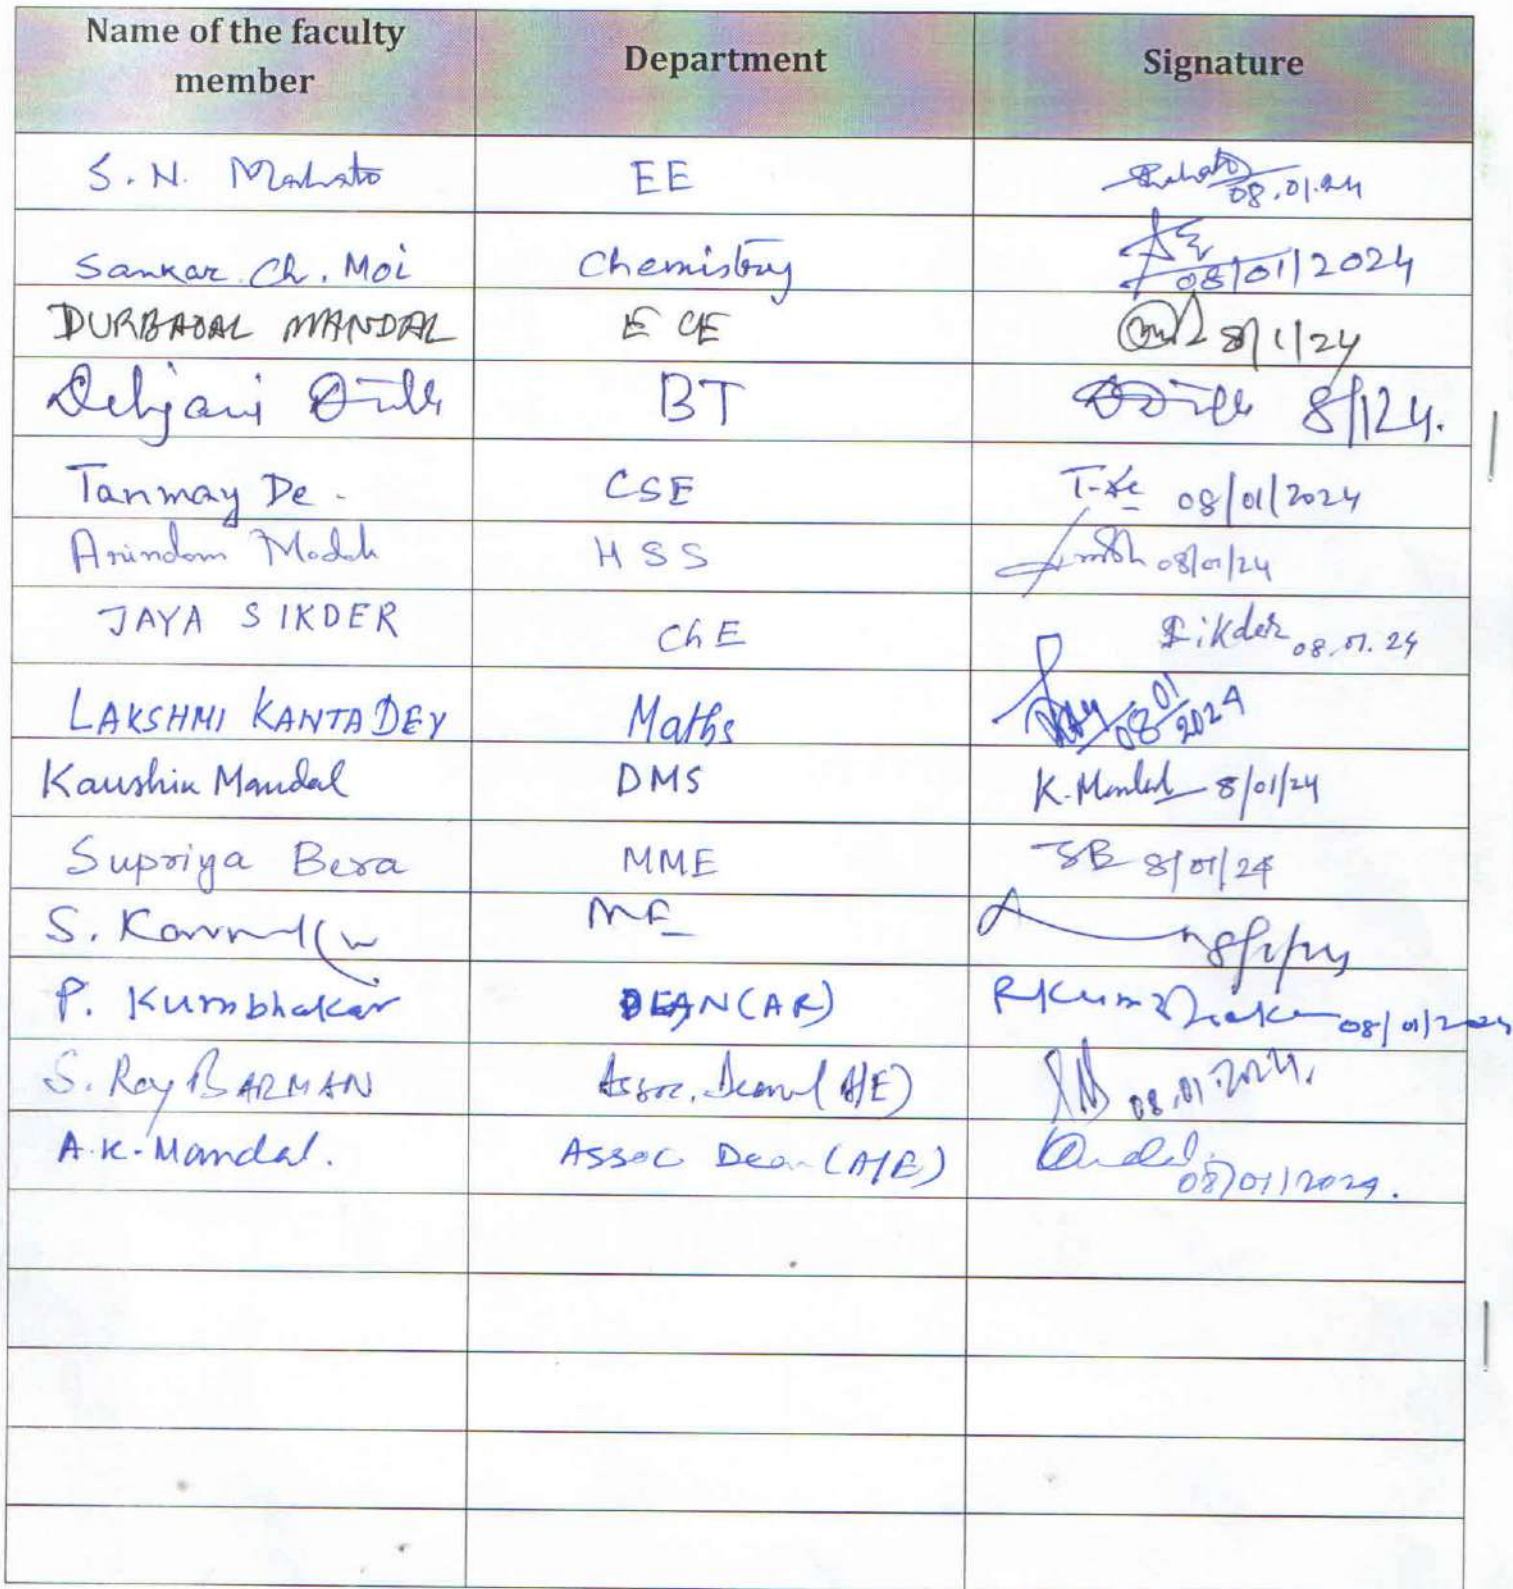 Name of the faculty member Department Signature
S. N. Mahato EE 08.01.24
Sankar Ch. Moi Chemistry 08/01/2024
DURBADAL MANDAL ECE 8/1/24
Debjani BT 8/1/24.
Tanmay De. CSE T. De 08/01/2024
Arindam Modak HSS 08/01/24
JAYA SIKDER ChE Sikder 08.01.24
LAKSHMI KANTA DEY Maths Dey 08/01/2024
Kaushik Mandal DMS K. Mandal 8/01/24
Supriya Bera MME SB 8/01/24
S. ME 8/1/24
P. Kumbhakar DEAN (AR) PKumbhakar 08/01/2024
S. Roy BARMAN Assoc. Dean (A/E) 08.01.2024.
A.K. Mandal. Assoc Dean (A/E) 08/01/2024.